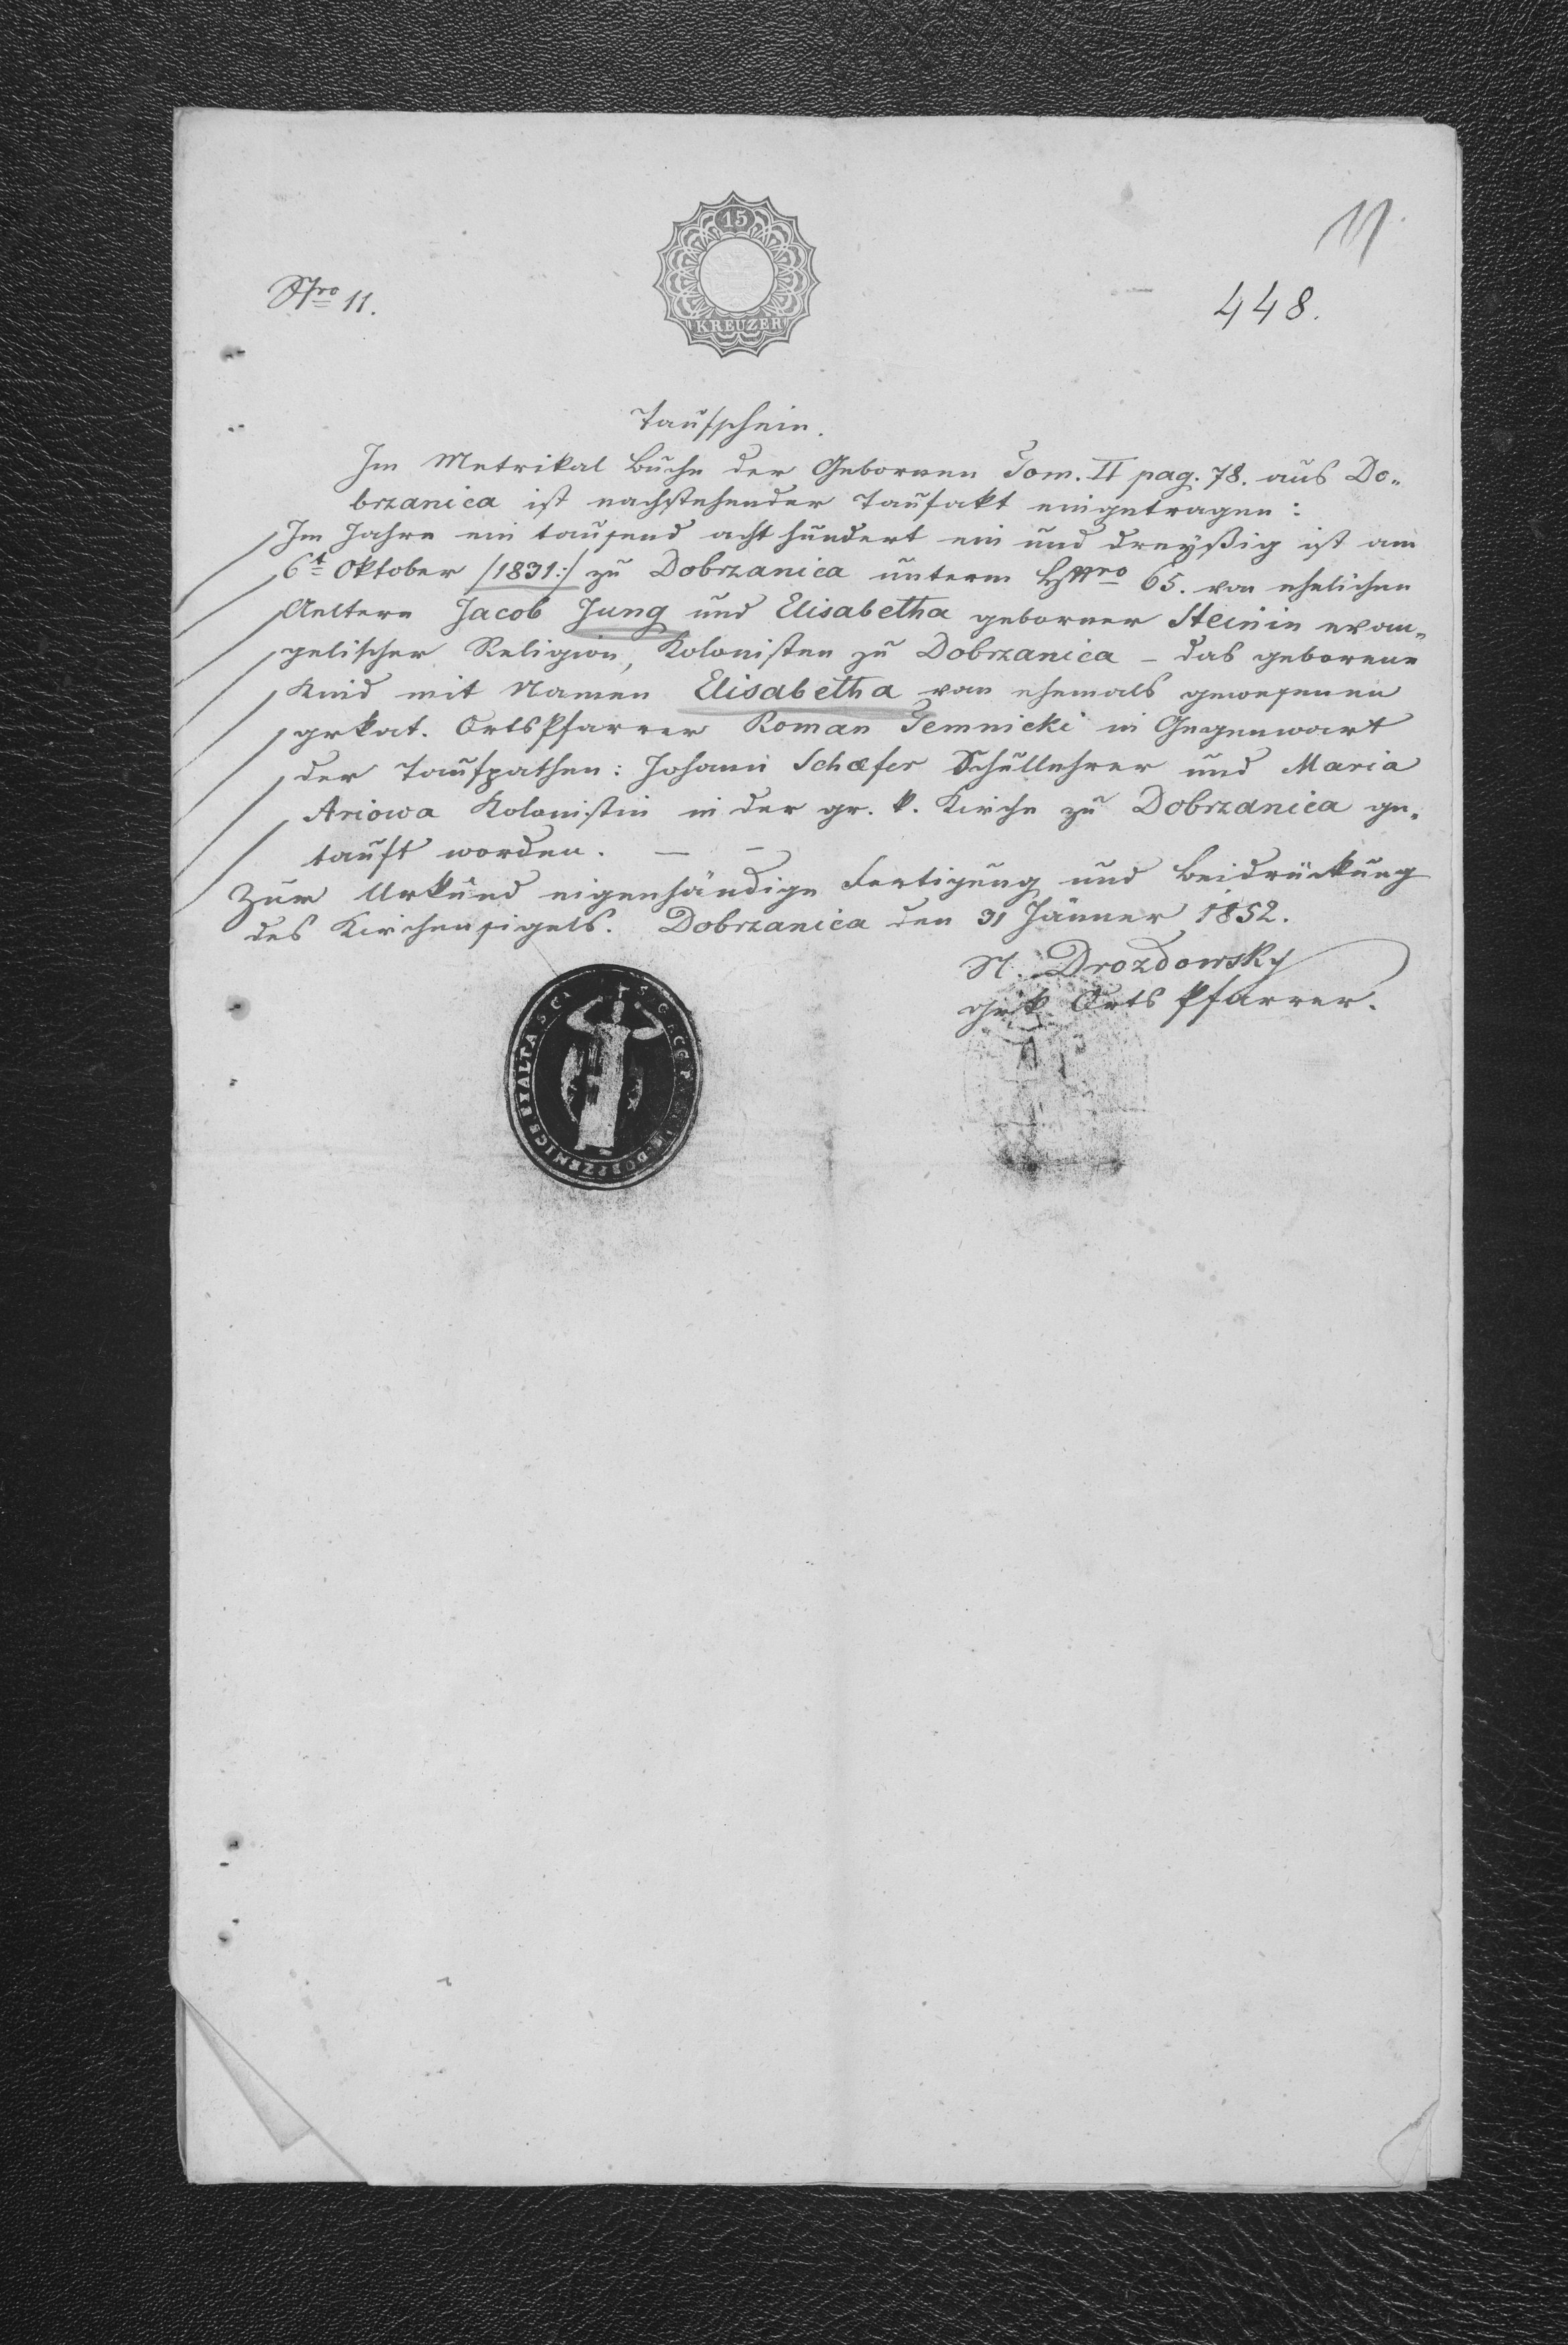 15
KREUZER
11
Nro 11.
448.
Taufschein.
Im Metrikal Buche der Gebornen Tom. II pag. 78. aus Do„
brzanica ist nachstehender Taufakt eingetragen:
Im Jahre ein tausend acht hundert ein und dreyßig ist am
6t Oktober /:1831:/ zu Dobrzanica unterm HsNro 65. von ehelichen
Aeltern Jacob Jung und Elisabetha geborner Steinin evan„
gelischer Religion, Kolonisten zu Dobrzanica – das geborene
Kind mit Namen Elisabetha vom ehemals gewesenen
gr kat. Orts Pfarrer Roman Temnicki in Gegenwart
der Taufpathen: Johann Schæfer Schullehrer und Maria
Ariowa Kolonistin in der gr. k. Kirche zu Dobrzanica ge„
tauft worden. — —
Zur Urkund eigenhändige Fertigung und Beidrückung
des Kirchensigels. Dobrzanica den 31 Jänner 1852.
Drozdowsky
gr k Orts Pfarrer.